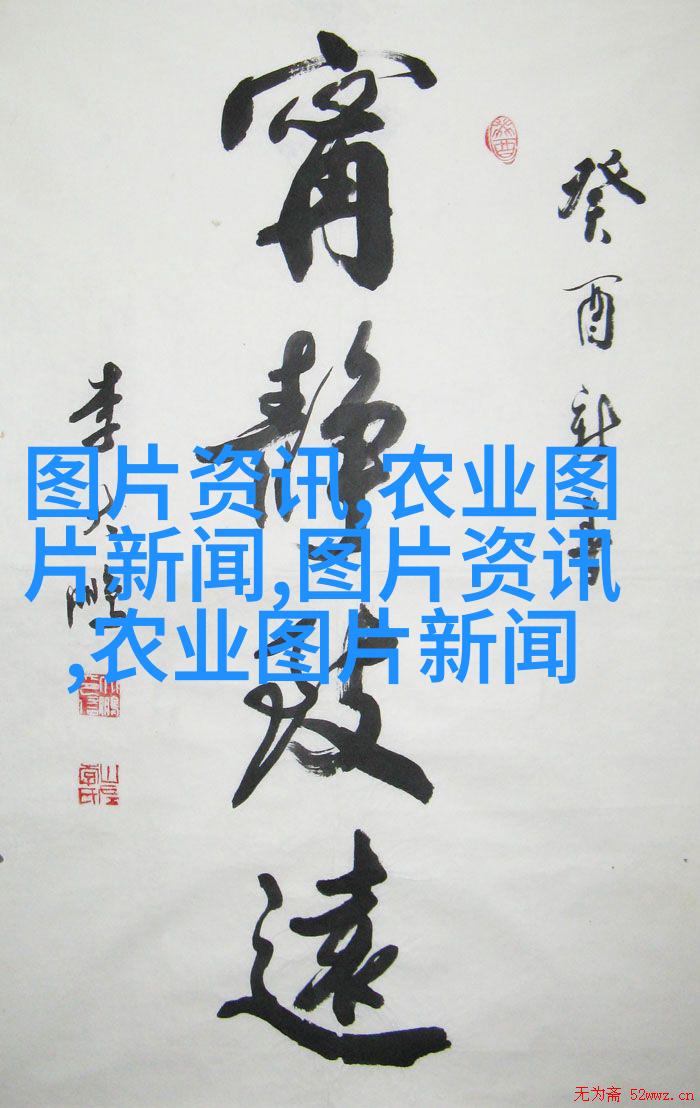 癸酉新春
甯靜致遠
李大鵬
图片资讯,农业图
片新闻,图片资讯
,农业图片新闻
无为斋 52wwz.cn